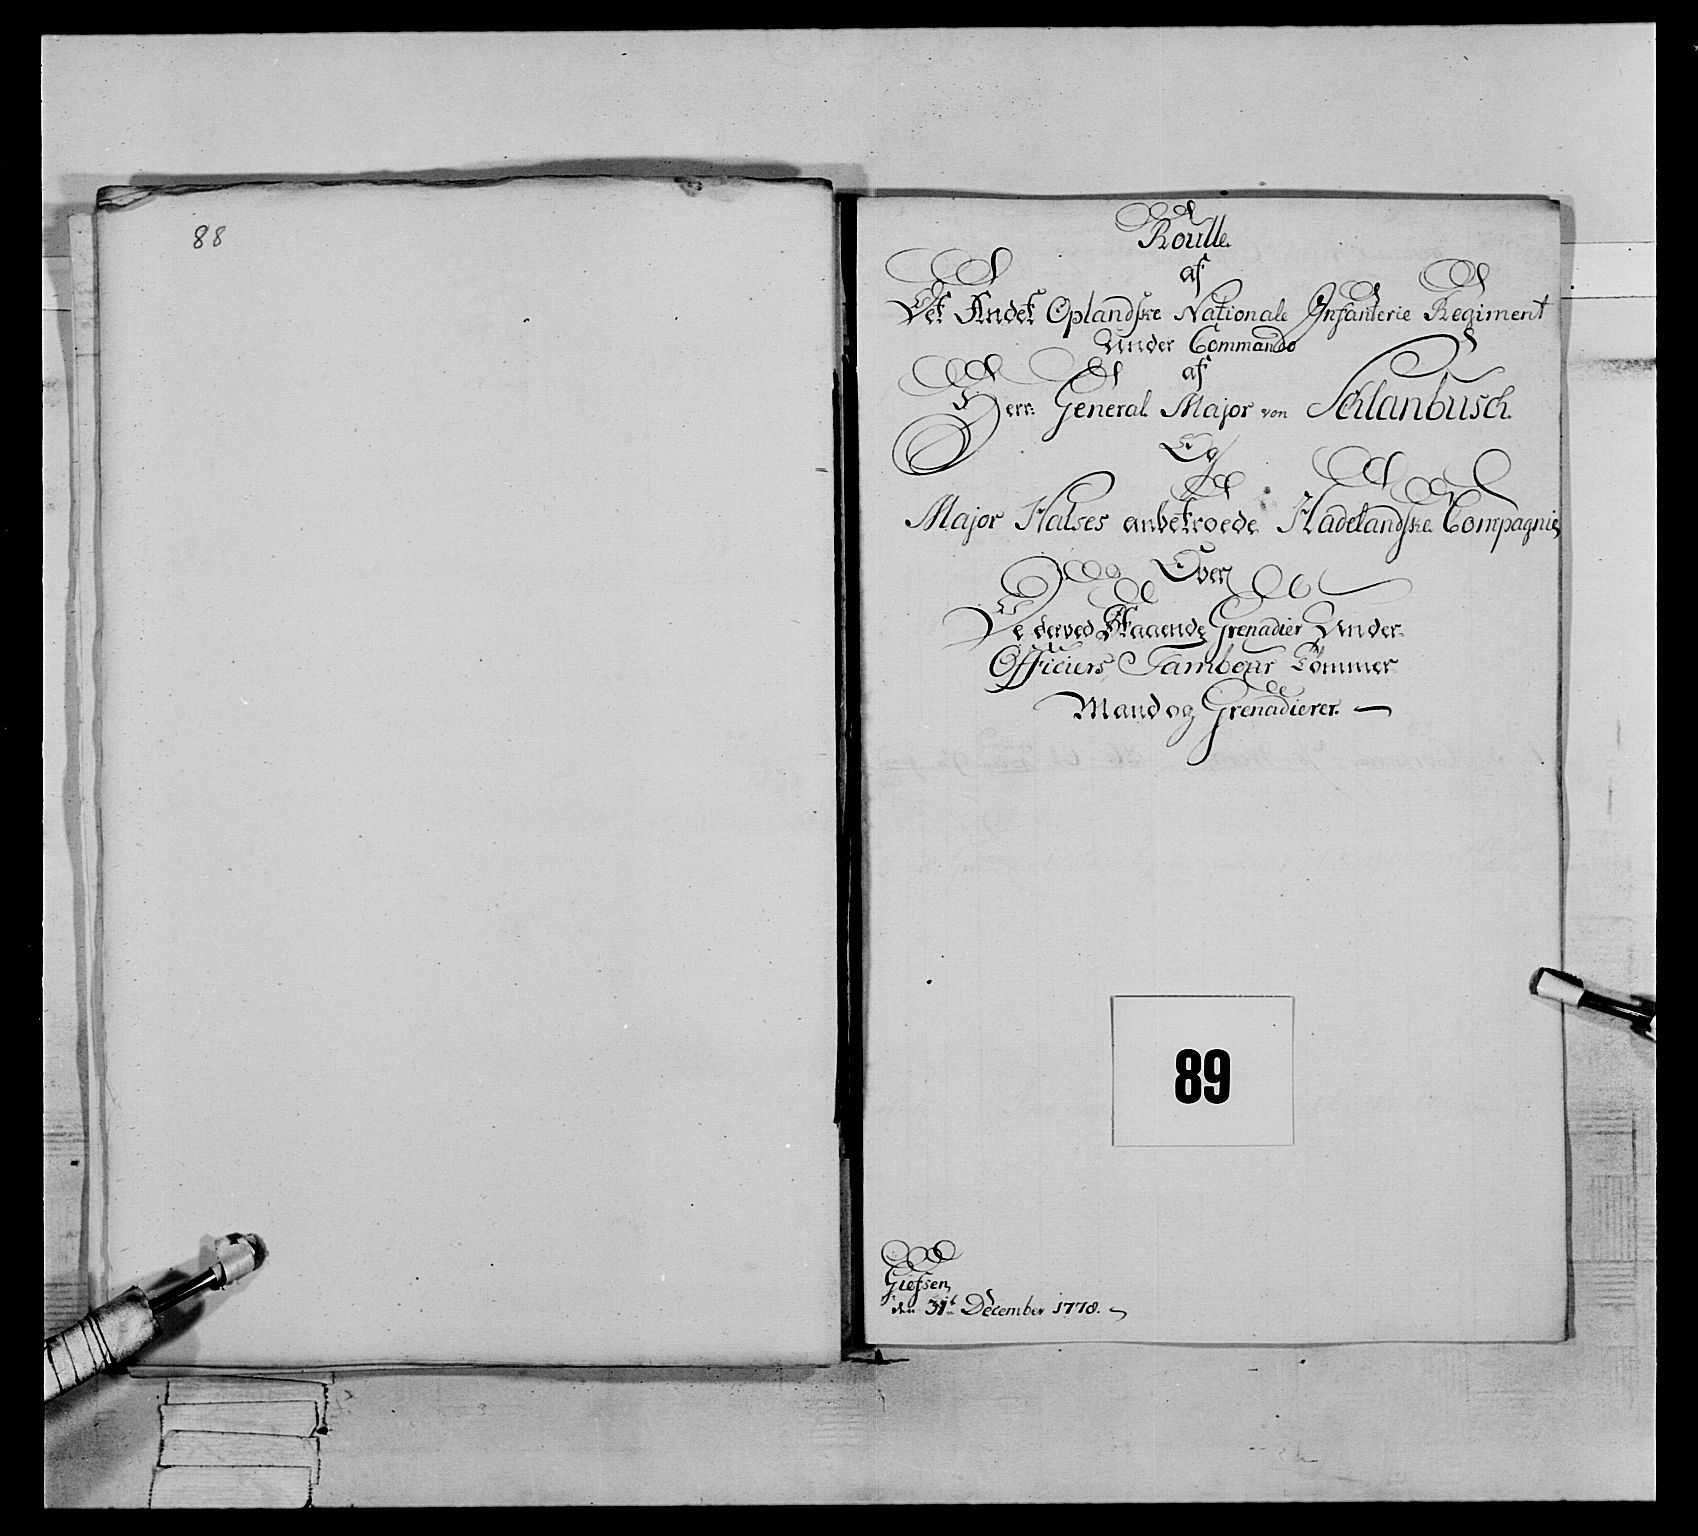 88
Roulle
af
Det Andet Oplandske Nationale Infanterie Regiment
Under Commando
af
Herr: General Major von Schlanbusch
Og
Major Halses anbetroede Hadelandske Compagnie
Over
De derved Staaende Grenadier Under-
Officiers, Tambour Tømmer-
Mand og Grenadierer.
89
Giefsen,
den 31t December 1778.